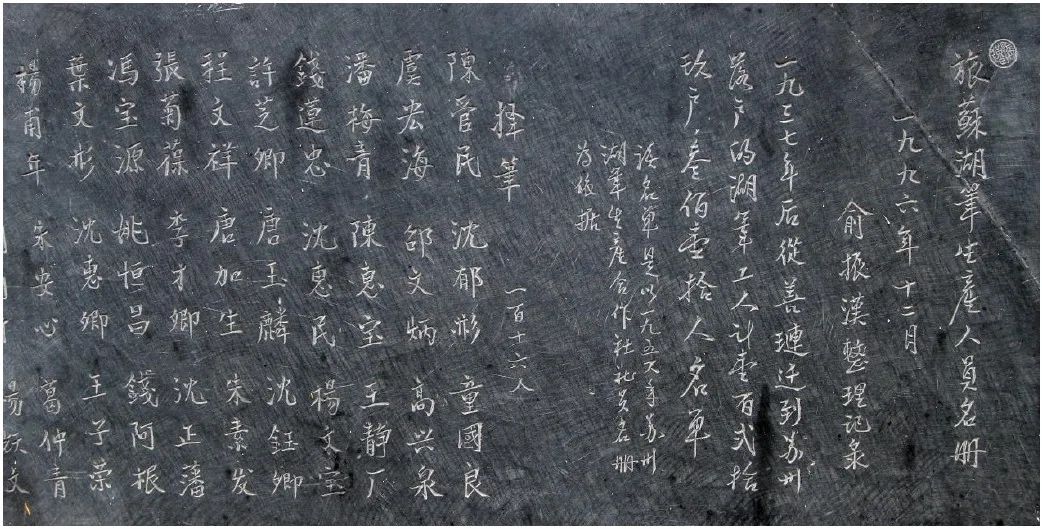 旅蘇湖筆生產人員名册
一九九六年十二月
俞振漢整理记录
一九三七年后從善璉迁到苏州
落户的湖筆工人计壹百弍拾
玖户叁佰壹拾人名單
該名單是以一九五六年苏州
湖筆生產合作社社员名册
为依据
擇筆 一百十六人
陳管民 沈郁彬 童國良
虞宏海 邵文炳 高兴泉
潘梅青 陳惠宝 王靜厂
錢蓮忠 沈惠民 楊文宝
許芝卿 唐玉麟 沈鈺卿
程文祥 唐加生 朱素发
張菊葆 李才卿 沈正潘
馮宝源 姚恒昌 錢阿根
葉文彬 沈惠卿 王子荣
楊甫年 宋安心 葛仲青